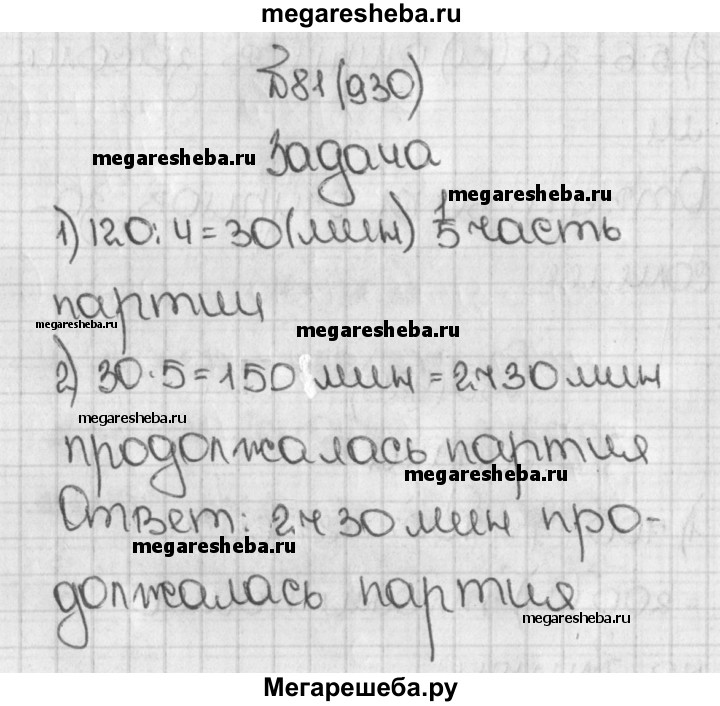 megaresheba.ru
№81 (930)
megaresheba.ru Задача
megaresheba.ru
1) 120 : 4 = 30 (мин) 1/5 часть
партии
megaresheba.ru
megaresheba.ru
2) 30 · 5 = 150 мин = 2 ч 30 мин
megaresheba.ru
продолжалась партия
megaresheba.ru
Ответ: 2 ч 30 мин про-
megaresheba.ru
должалась партия
megaresheba.ru
Мегарешеба.ру